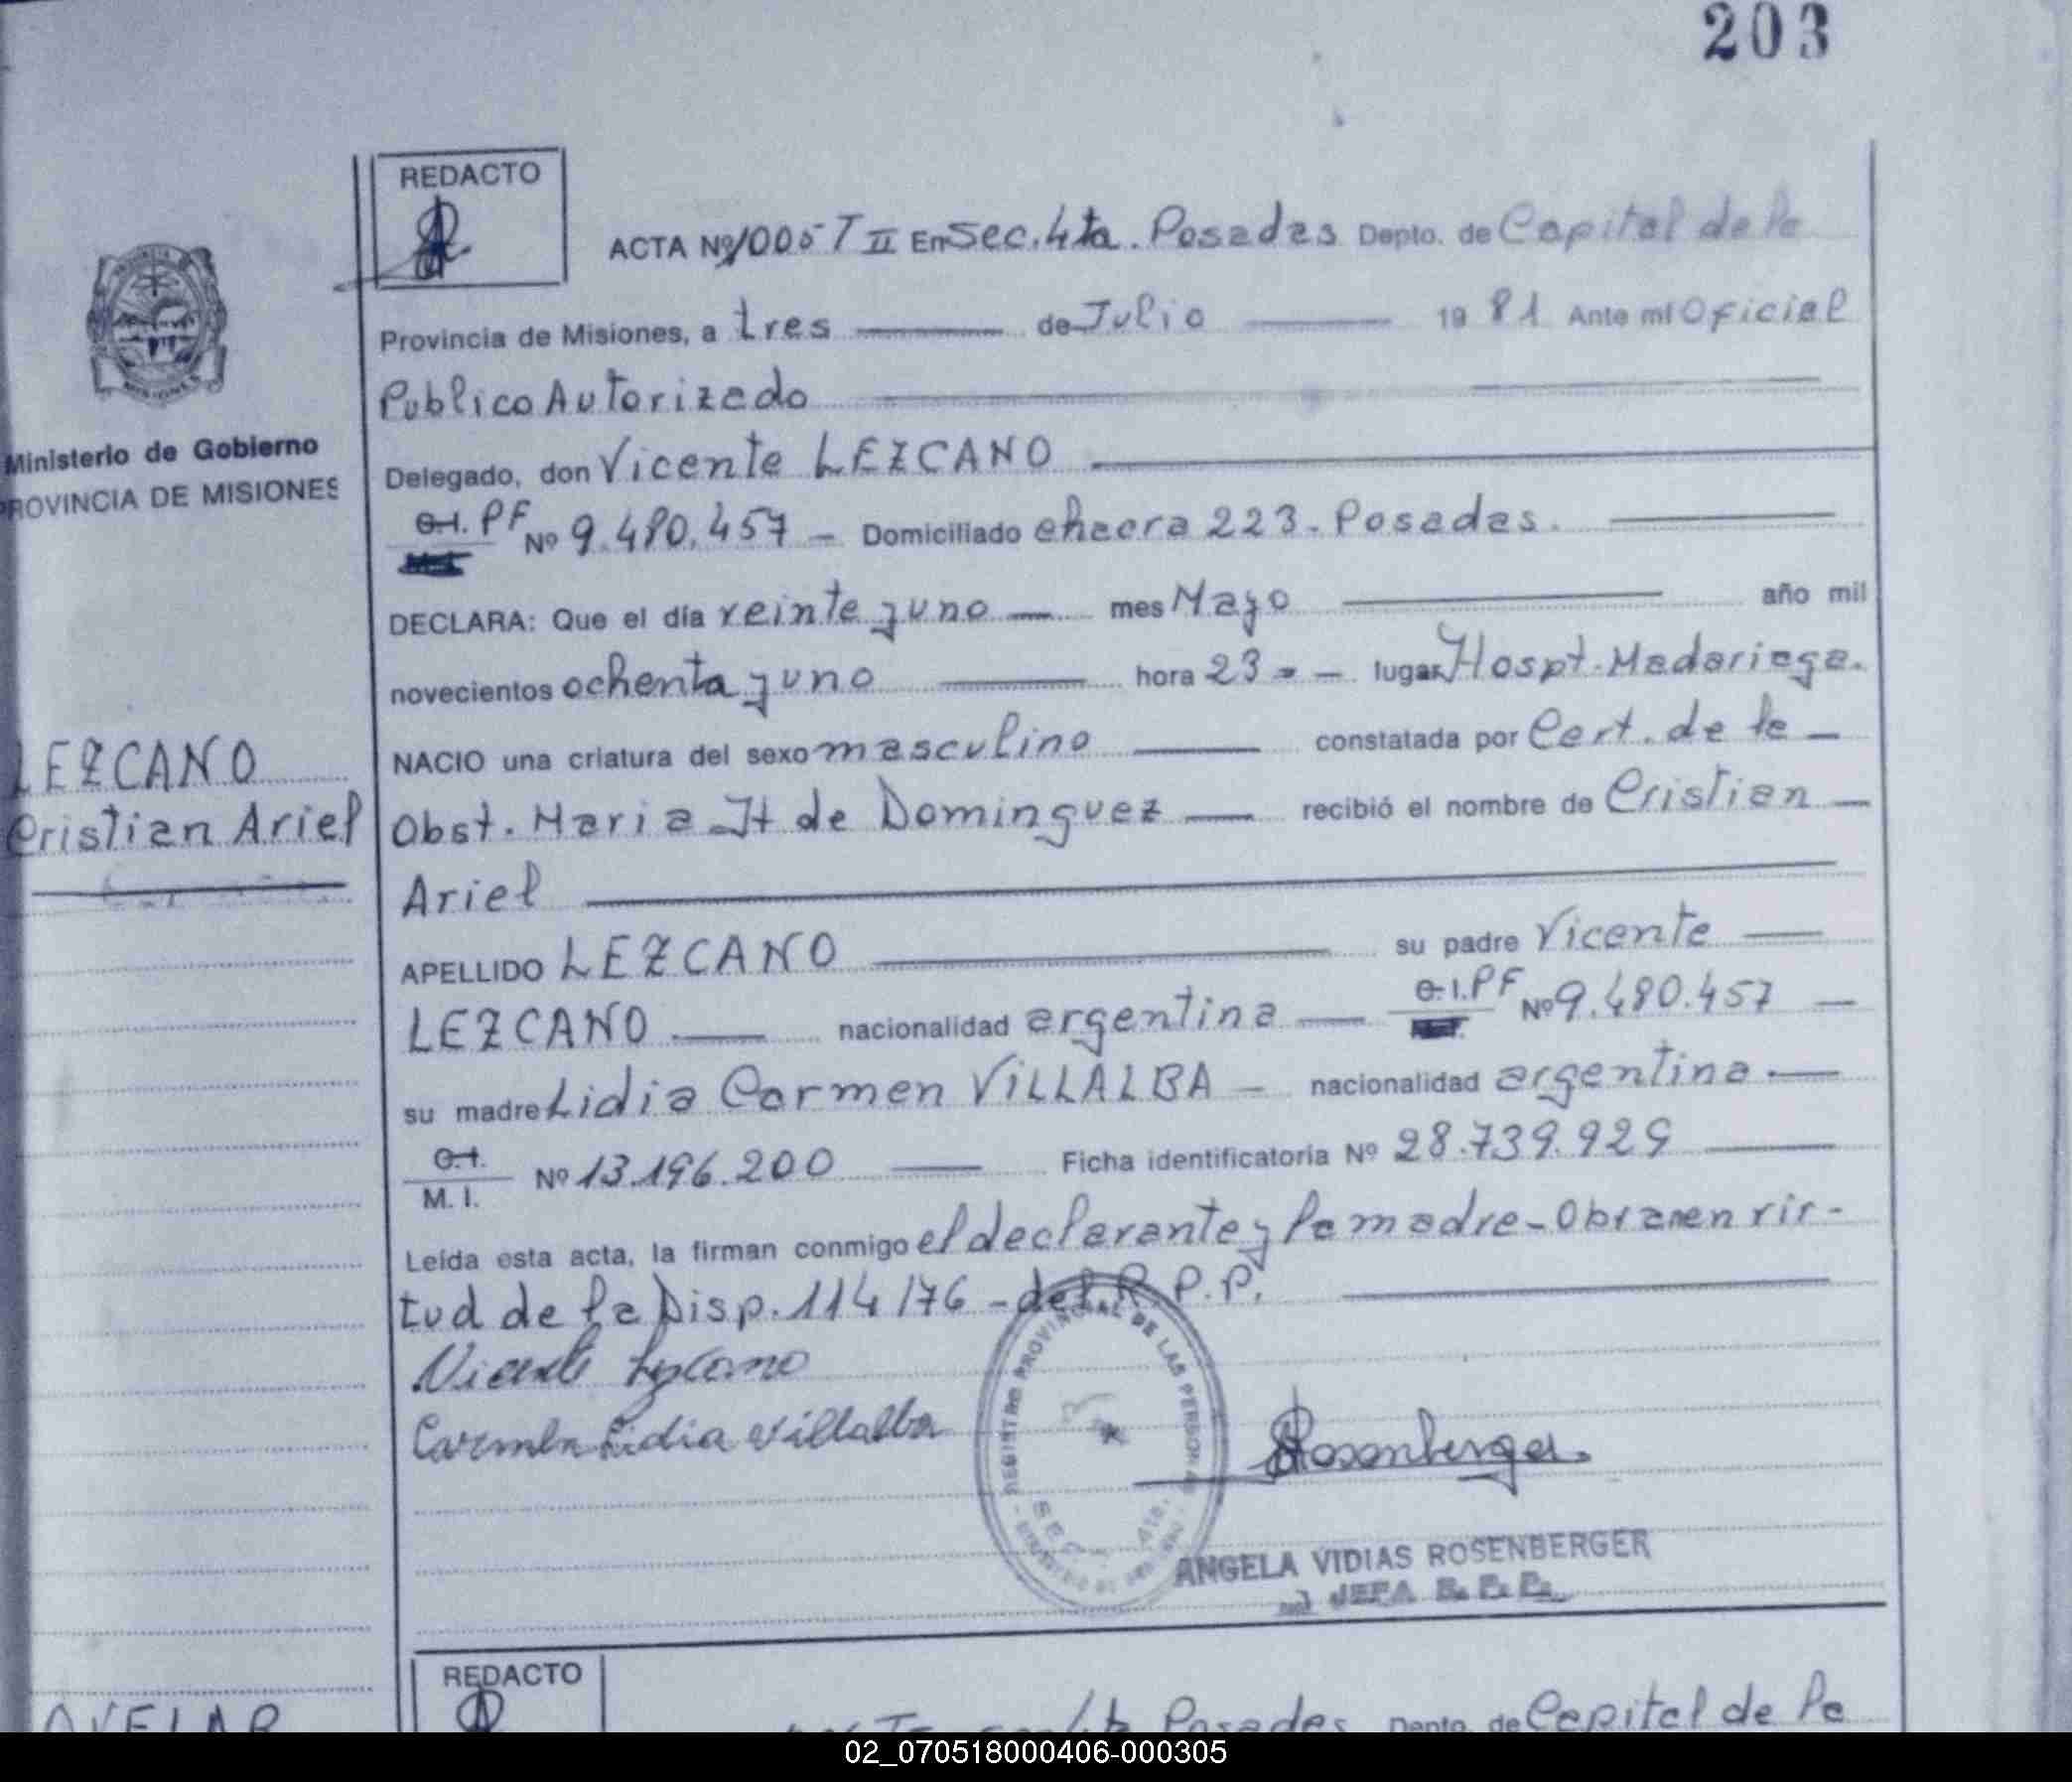 203
REDACTO
ACTA Nº 1005 T II En Sec. 4ta. Posadas Depto. de Capital de la
Provincia de Misiones, a tres de Julio 19 81 Ante mi Oficial
Publico Autorizado
Ministerio de Gobierno
PROVINCIA DE MISIONES
Delegado, don Vicente LEZCANO
C.I. PF Nº 9.480.457 - Domiciliado chacra 223. Posadas.
DECLARA: Que el día veinte y uno mes Mayo año mil
novecientos ochenta y uno hora 23 - lugar Hospt. Madariaga.
NACIO una criatura del sexo masculino constatada por Cert. de la
LEZCANO
Cristian Ariel
Obst. Maria H de Dominguez recibió el nombre de Cristian
Ariel
APELLIDO LEZCANO su padre Vicente
LEZCANO nacionalidad argentina C.I. PF Nº 9.480.457
su madre Lidia Carmen VILLALBA - nacionalidad argentina
C.I.
M. I. Nº 13.196.200 Ficha identificatoria Nº 28.739.929
Leída esta acta, la firman conmigo el declarante y la madre - Obran en vir-
tud de la Disp. 114/76 - del R.P.P.
Vicente Lezcano
Carmen Lidia Villalba
REGISTRO PROVINCIAL DE LAS PERSONAS
Rosenberger
ANGELA VIDIAS ROSENBERGER
JEFA R. P. P.
REDACTO
AVELAR
Posadas Depto. de Capital de la
02_070518000406-000305